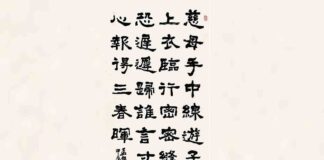 慈母手中線遊子
上衣臨行密密縫
恐遲遲歸誰言寸
心報得三春暉